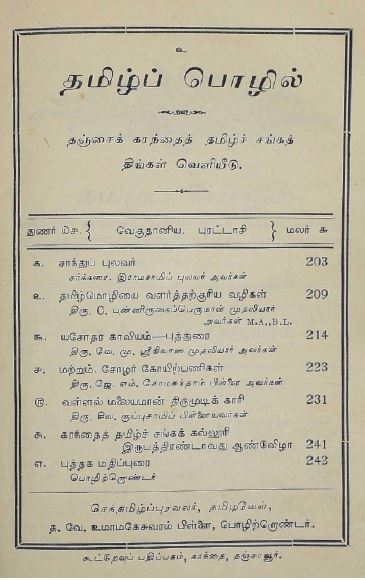 உ
தமிழ்ப் பொழில்
தஞ்சைக் கரந்தைத் தமிழ்ச் சங்கத்
திங்கள் வெளியீடு.
துணர் ௰௪. { வெகுதானிய. புரட்டாசி { மலர் ௬
௧. சாந்துப் புலவர் 203
சர்க்கரை. இராமசாமிப் புலவர் அவர்கள்
௨. தமிழ்மொழியை வளர்த்தற்குரிய வழிகள் 209
திரு. C. பண்ணிருகைப்பெருமாள் முதலியார்
அவர்கள் M.A., B.L.
௩. யசோதர காவியம்—புத்துரை 214
திரு. வே. மு. ஸ்ரீநிவாஸ முதலியார் அவர்கள்
௪. மற்றும். சோழர் கோயிற்பணிகள் 223
திரு. ஜே. எம். சோமசுந்தரம் பிள்ளை அவர்கள்
௫. வள்ளல் மலையமான் திருமுடிக் காரி 231
திரு. சிவ. குப்புசாமிப் பிள்ளையவர்கள்
௬. கரந்தைத் தமிழ்ச் சங்கக் கல்லூரி
இருபத்திரண்டாவது ஆண்விழா 241
௭. புத்தக மதிப்புரை 242
பொழிற்றொண்டர்
செந்தமிழ்ப்புரவலர், தமிழவேள்,
த. வே. உமாமகேசுவரம் பிள்ளை, பொழிற்றொண்டர்.
கூட்டுறவுப் பதிப்பகம், கரந்தை, தஞ்சாவூர்.